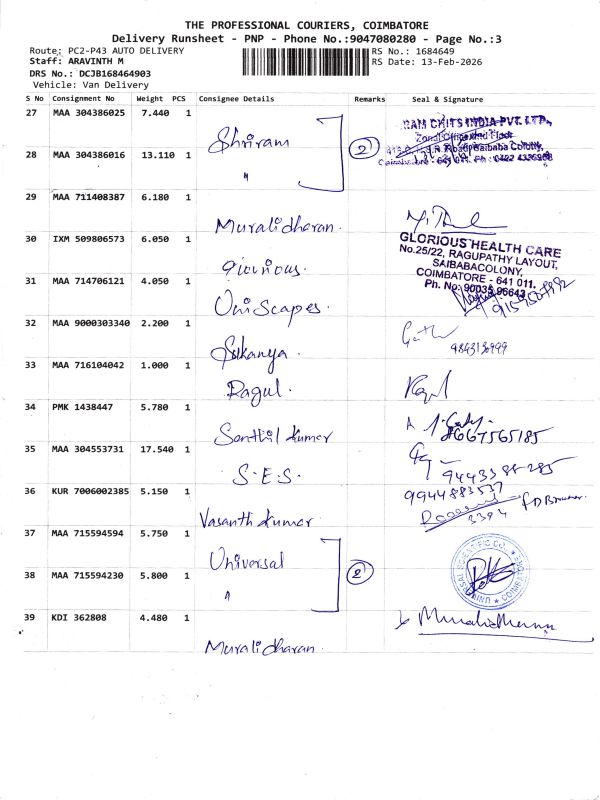 THE PROFESSIONAL COURIERS, COIMBATORE
Delivery Runsheet - PNP - Phone No.:9047080280 - Page No.:3
Route: PC2-P43 AUTO DELIVERY RS No.: 1684649
Staff: ARAVINTH M RS Date: 13-Feb-2026
DRS No.: DCJB168464903
Vehicle: Van Delivery
S No Consignment No Weight PCS Consignee Details Remarks Seal & Signature
27 MAA 304386025 7.440 1
Shriram 2
RAM CHITS INDIA PVT. LTD.,
28 MAA 304386016 13.110 1 "
Saibaba Colony,
29 MAA 711408387 6.180 1
Muralidharan.
30 IXM 509806573 6.050 1
Glorious.
GLORIOUS HEALTH CARE
No.25/22, RAGUPATHY LAYOUT,
SAIBABACOLONY,
COIMBATORE - 641 011.
Ph. No: 90035 96643
31 MAA 714706121 4.050 1
UniScapes.
32 MAA 9000303340 2.200 1
Sukanya
33 MAA 716104042 1.000 1
Ragul.
34 PMK 1438447 5.780 1
Senthil kumar
8667565185
35 MAA 304553731 17.540 1
S.E.S.
36 KUR 7006002385 5.150 1
9944883537
Vasanth kumar
3394
37 MAA 715594594 5.750 1
Universal 2
38 MAA 715594230 5.800 1 "
39 KDI 362808 4.480 1
Muralidharan
Muralidharan.